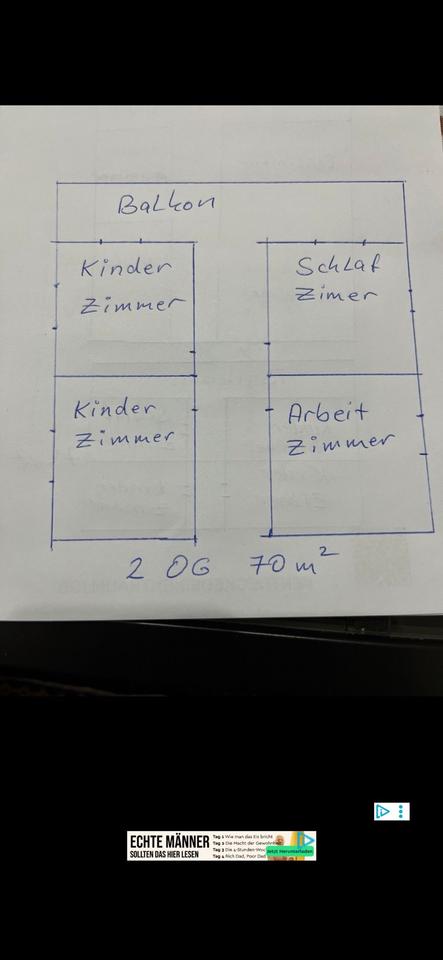 Balkon
Kinder
Zimmer
Schlaf
Zimer
Kinder
Zimmer
Arbeit
Zimmer
2 OG 70 m²
ECHTE MÄNNER
SOLLTEN DAS HIER LESEN
Tag 1 Wie man das Eis bricht
Tag 2 Die Macht der Gewohnheit
Tag 3 Die 4-Stunden-Woc
Tag 4 Rich Dad, Poor Dad
Jetzt Herunterladen